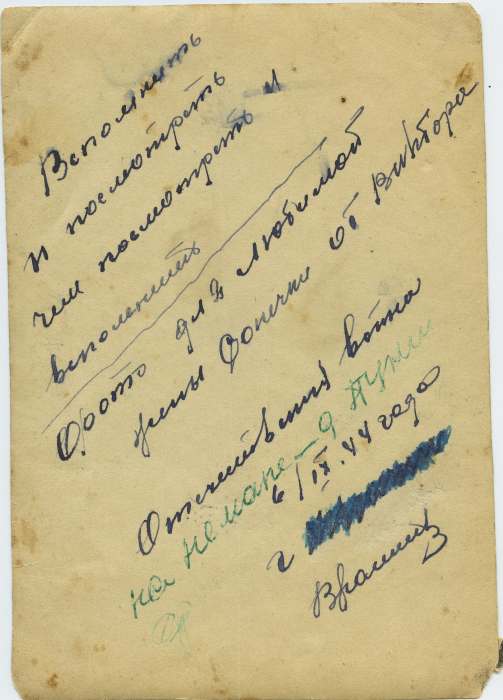 Вспомнить
и посмотреть
чем посмотреть и
вспомнить
Фото для любимой
жены Сонечки от Виктора
Отечествиная война
на Немане-д
6/IX.44 года
г